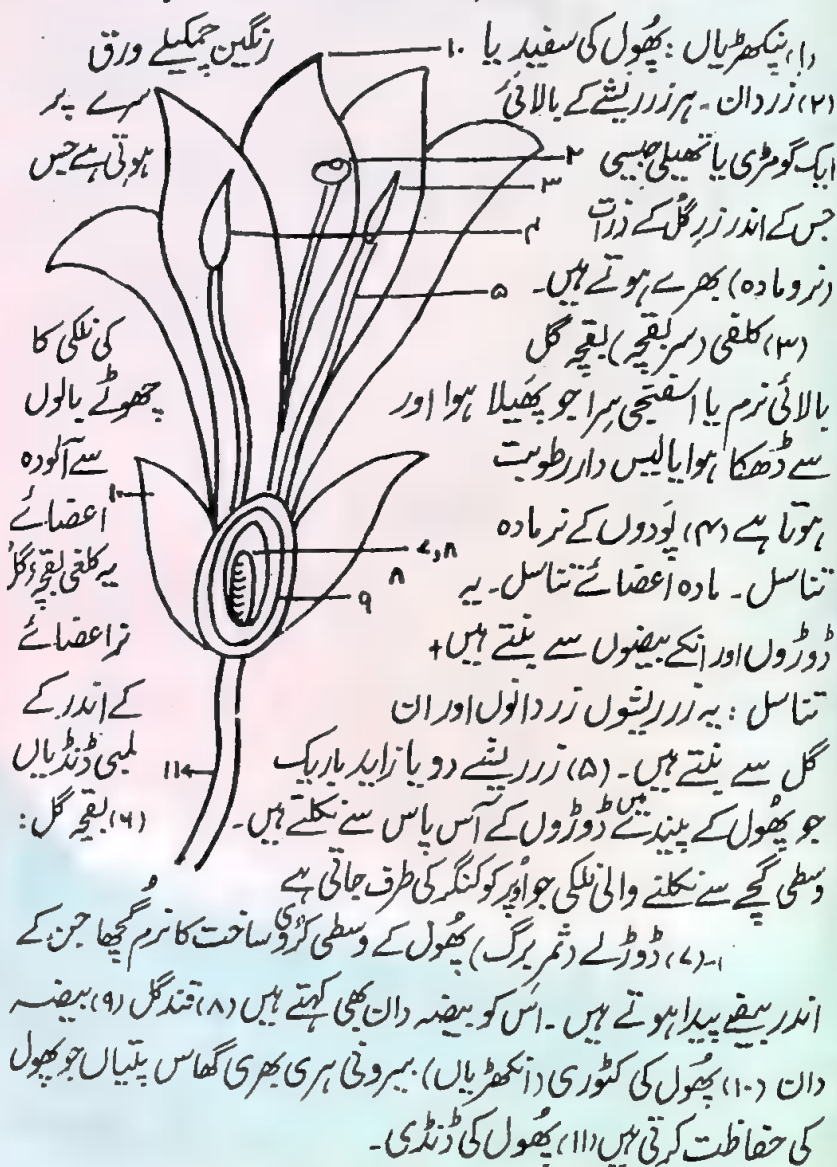 (۱) پنکھڑیاں : پھُول کی سفید یا ۱۰ رنگین چمکیلے ورق
(۲) زردان ۔ ہر زرریشے کے بالائی سرے پر
ایک گومڑی یا تھیلی جیسی ۲ ہوتی ہے جس
۳
جس کے اندر زرِ گُل کے ذرات ۴
(نر و مادہ) بھرے ہوتے ہیں۔ ۵
(۳) کلغی (سر بقچہ) بقچہ گل کی نلکی کا
بالائی نرم یا اسفنجی سِرا جو پھیلا ہوا اور چھوٹے بالوں
سے ڈھکا ہوا یا لیس دار رطوبت سے آلودہ
۱۰
ہوتا ہے (۴) پودوں کے نر مادہ اعضائے
۷،۸
تناسل ۔ مادہ اعضائے تناسل ۔ یہ ۸ ۹ یہ کلغی بقچہء گُل
ڈوڑوں اور انکے بیضوں سے بنتے ہیں+ نر اعضائے
تناسل : یہ زرریشوں زردانوں اور ان کے اندر کے
گل سے بنتے ہیں۔ (۵) زرریشے دو یا زاید باریک ۱۱ لمبی ڈنڈیاں
جو پھُول کے پیندے میں ڈوڑوں کے آس پاس سے نکلتے ہیں۔ (۶) بقچہ گل :
وسطی گچھے سے نکلنے والی نلکی جو اُوپر کو کنگر کی طرف جاتی ہے
۔(۷) ڈوڑلے (ثمر برگ) پھُول کے وسطی کرُوی ساخت کا نرم گُچھا جن کے
اندر بیضے پیدا ہوتے ہیں ۔ اس کو بیضہ دان بھی کہتے ہیں (۸) قند گل (۹) بیضہ
دان (۱۰) پھُول کی کٹوری (انکھڑیاں) بیرونی ہری بھری گھاس پتیاں جو پھول
کی حفاظت کرتی ہیں (۱۱) پھُول کی ڈنڈی۔